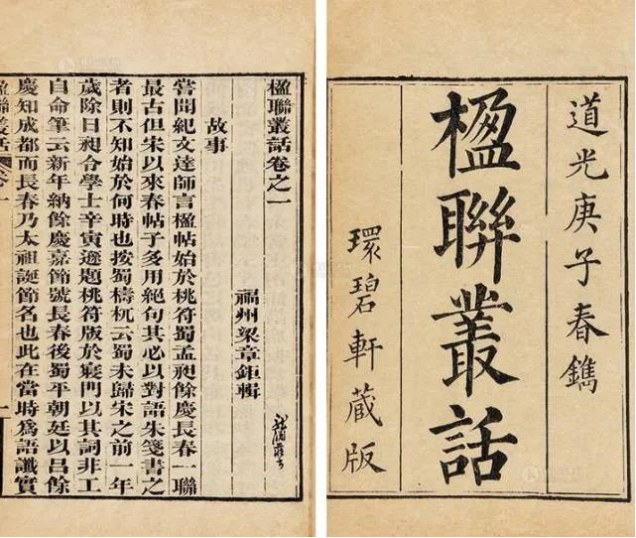 道光庚子春鐫
楹聯叢話
環碧軒藏版
楹聯叢話卷之一
福州梁章鉅輯
故事
嘗聞紀文達師言楹帖始於桃符蜀孟昶餘慶長春一聯
最古但宋以來春帖子多用絕句其必以對語朱箋書之
者則不知始於何時也按蜀檮杌云蜀未歸宋之前一年
歲除日昶令學士辛寅遜題桃符版於寢門以其詞非工
自命筆云新年納餘慶嘉節號長春後蜀平朝廷以呂餘
慶知成都而長春乃太祖誕節名也此在當時爲語讖實
楹聯叢話